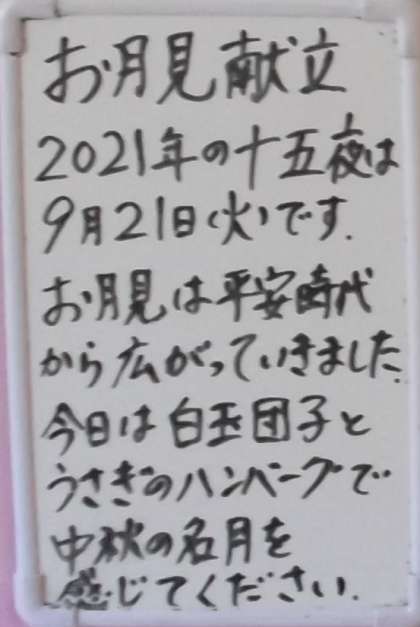 お月見献立
2021年の十五夜は
9月21日(火)です.
お月見は平安時代
から広がっていきました.
今日は白玉団子と
うさぎのハンバーグで
中秋の名月を
感じてください.